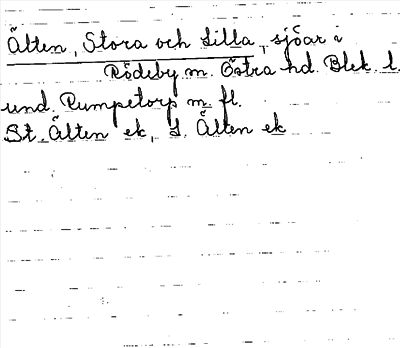 Älten, Stora och Lilla, sjöar i
Rödeby m. Östra hd. Blek. l.
und. Rumpetorp m. fl.
St. Älten ek, L. Älten ek